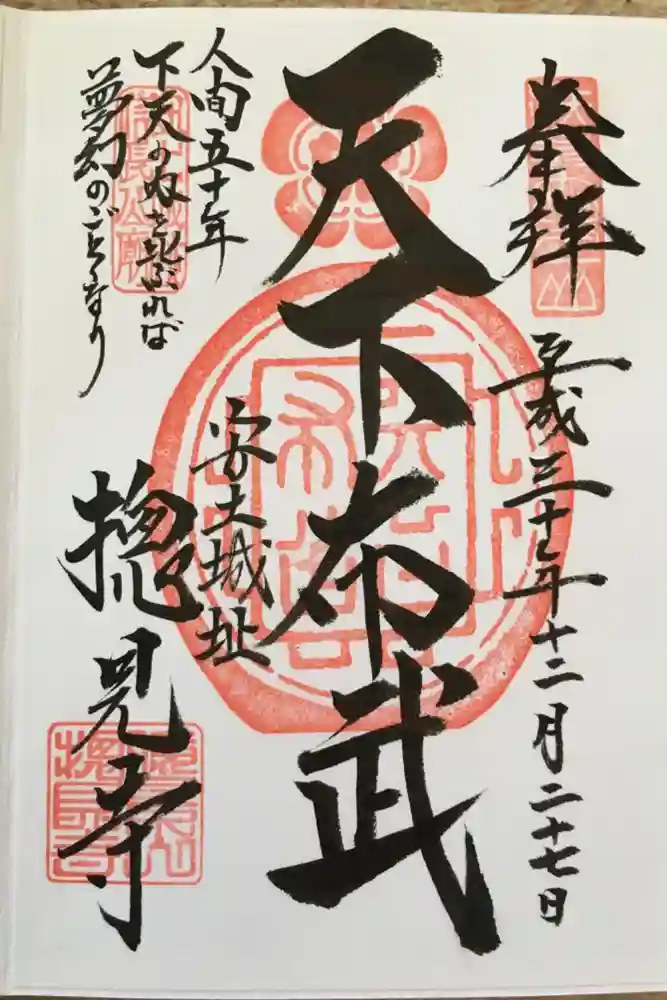 奉拝
平成三十年十二月二十七日
天下布武
安土城址
人間五十年
下天の内を比ぶれば
夢幻のごとくなり
摠見寺
信長公廟